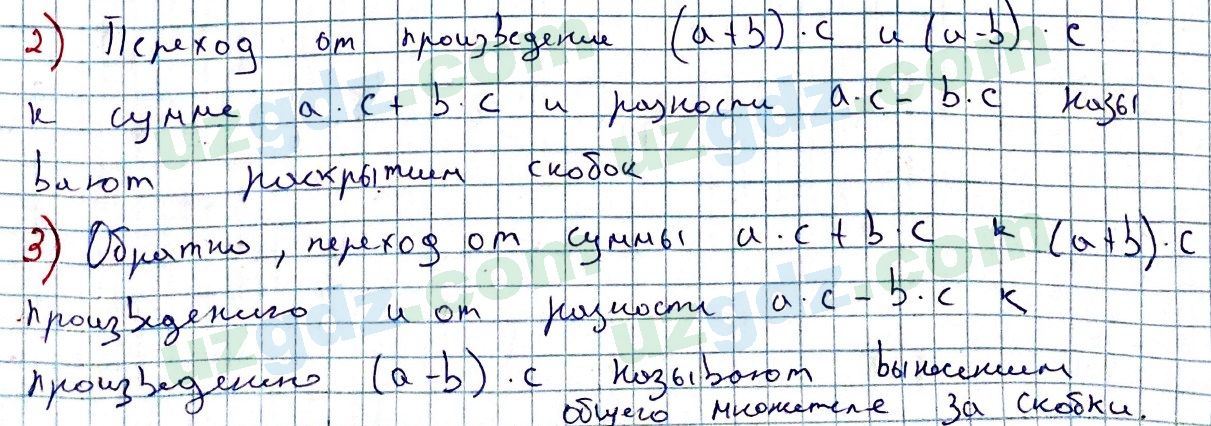 2) Переход от произведение (a+b)·c и (a-b)·c
к сумме a·c+b·c и разности a·c-b·c назы
вают раскрытием скобок
3) Обратно, переход от суммы a·c+b·c к (a+b)·c
произведению и от разности a·c-b·c к
произведению (a-b)·c называют вынесением
общего множителя за скобки.
uzgdz.com
uzgdz.com
uzgdz.com
uzgdz.com